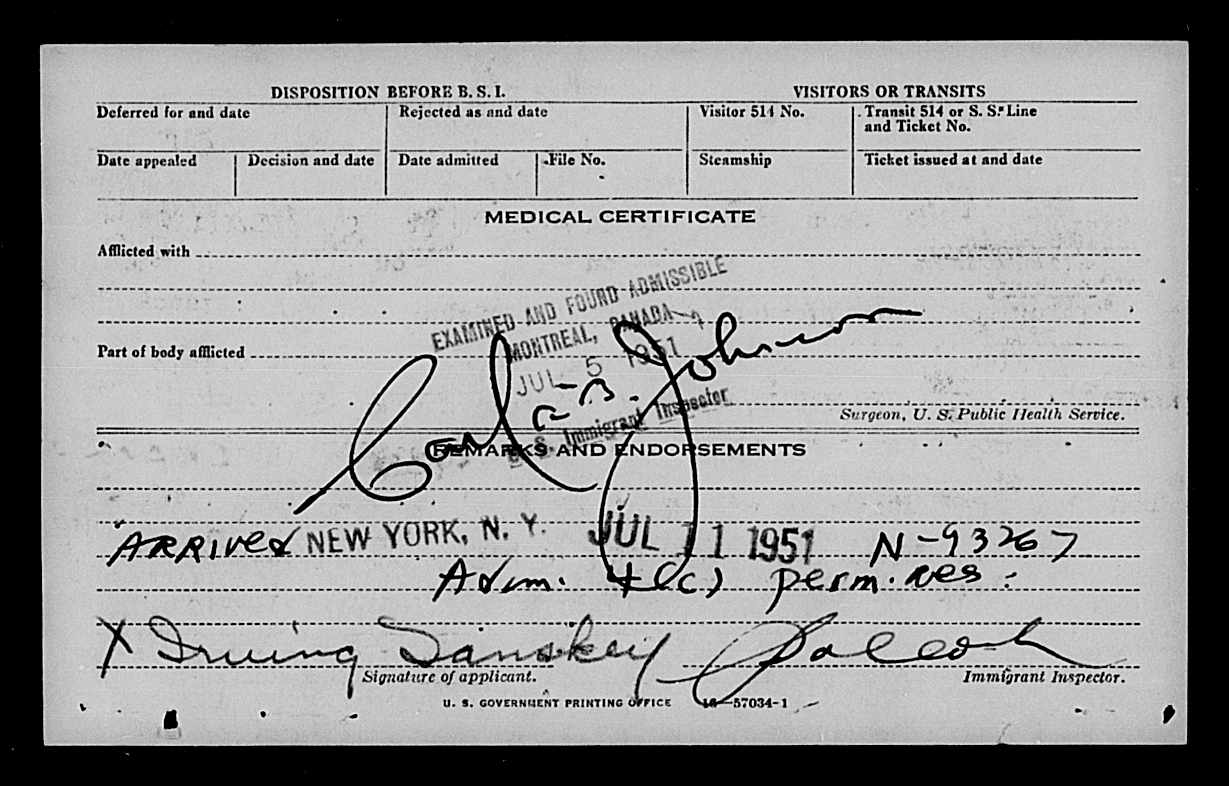 DISPOSITION BEFORE B. S. I.
VISITORS OR TRANSITS
Deferred for and date
Rejected as and date
Visitor 514 No.
Transit 514 or S. S. Line and Ticket No.
Date appealed
Decision and date
Date admitted
File No.
Steamship
Ticket issued at and date
MEDICAL CERTIFICATE
Afflicted with
EXAMINED AND FOUND ADMISSIBLE
MONTREAL, CANADA
Part of body afflicted
JUL 5 1951
Carl B. Johnson
U. S. Immigrant Inspector
Surgeon, U. S. Public Health Service.
REMARKS AND ENDORSEMENTS
ARRIVED NEW YORK, N. Y. JUL 11 1951 N-93267
Adm. 4(c) perm. res.
X Irving Sanskey
Signature of applicant.
Immigrant Inspector.
U. S. GOVERNMENT PRINTING OFFICE 16—57034-1